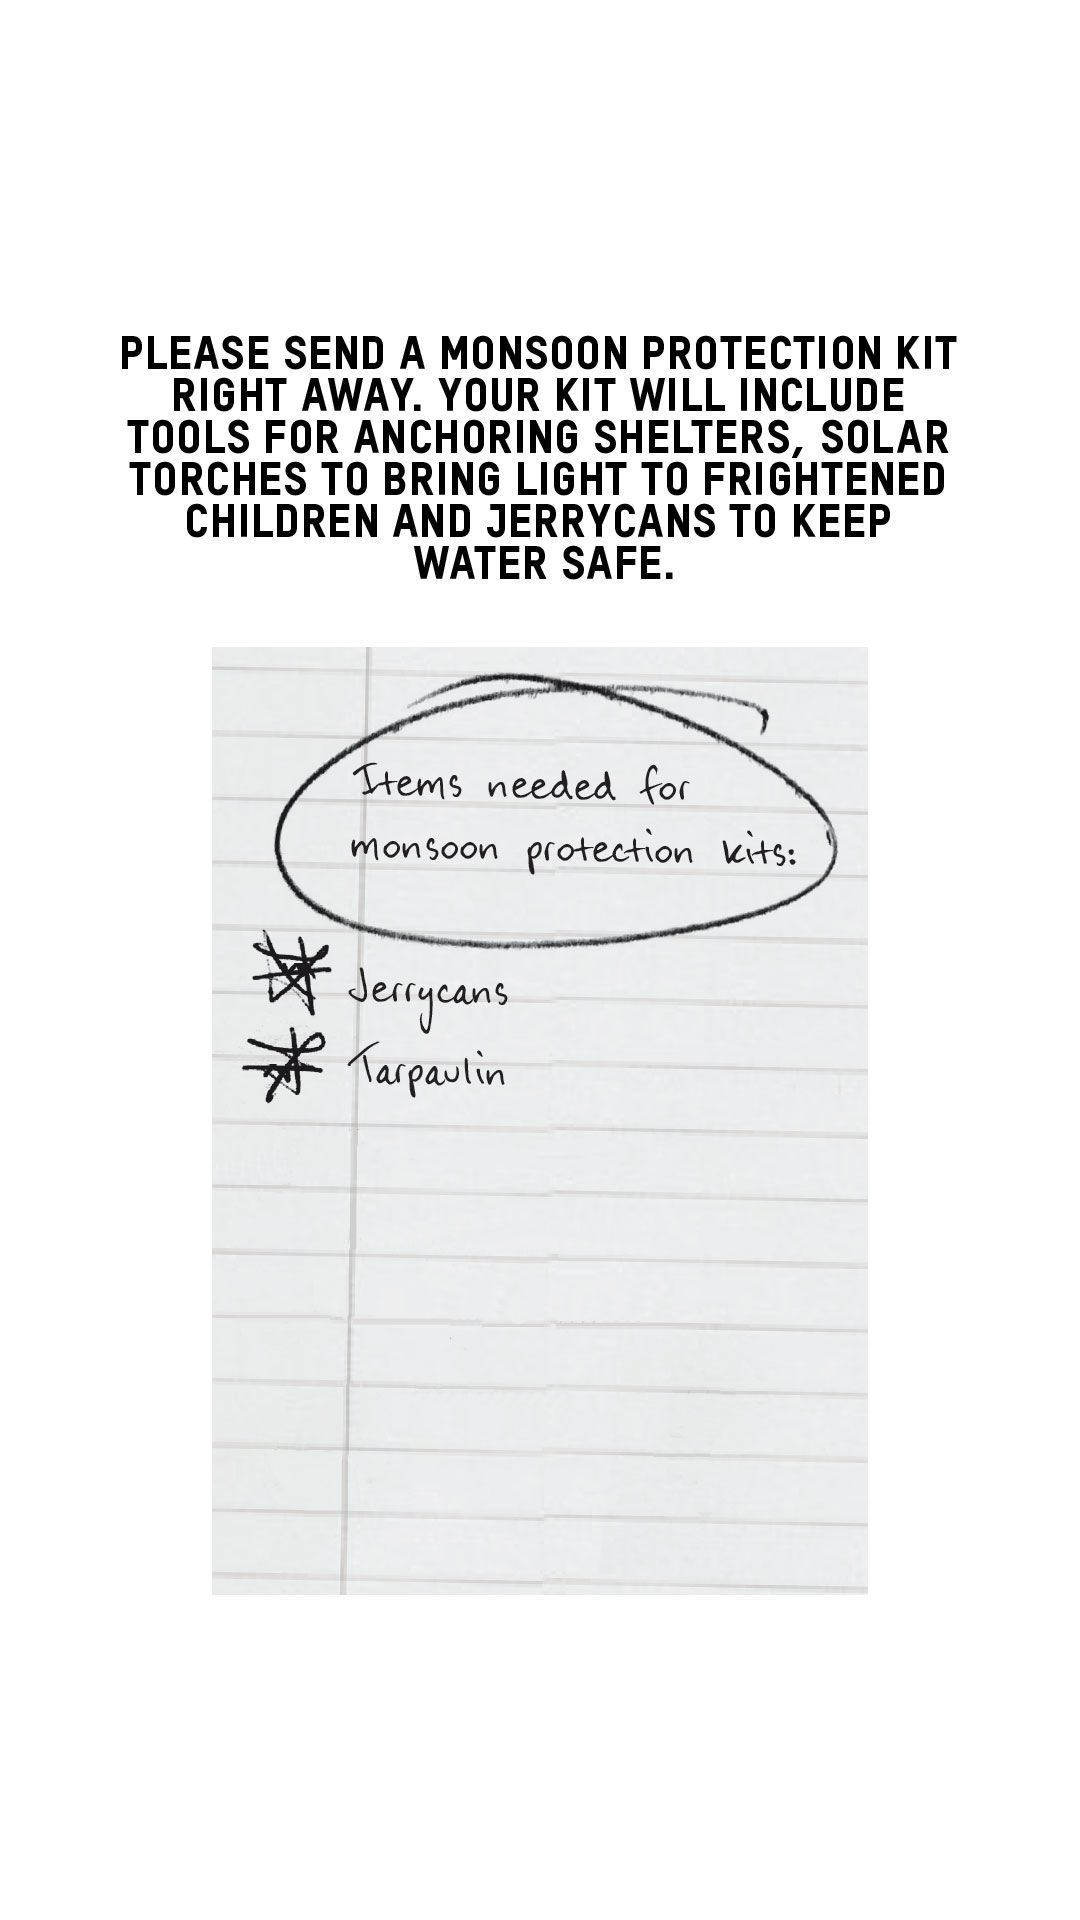 PLEASE SEND A MONSOON PROTECTION KIT
RIGHT AWAY. YOUR KIT WILL INCLUDE
TOOLS FOR ANCHORING SHELTERS, SOLAR
TORCHES TO BRING LIGHT TO FRIGHTENED
CHILDREN AND JERRYCANS TO KEEP
WATER SAFE.
Items needed for
monsoon protection kits:
Jerrycans
Tarpaulin